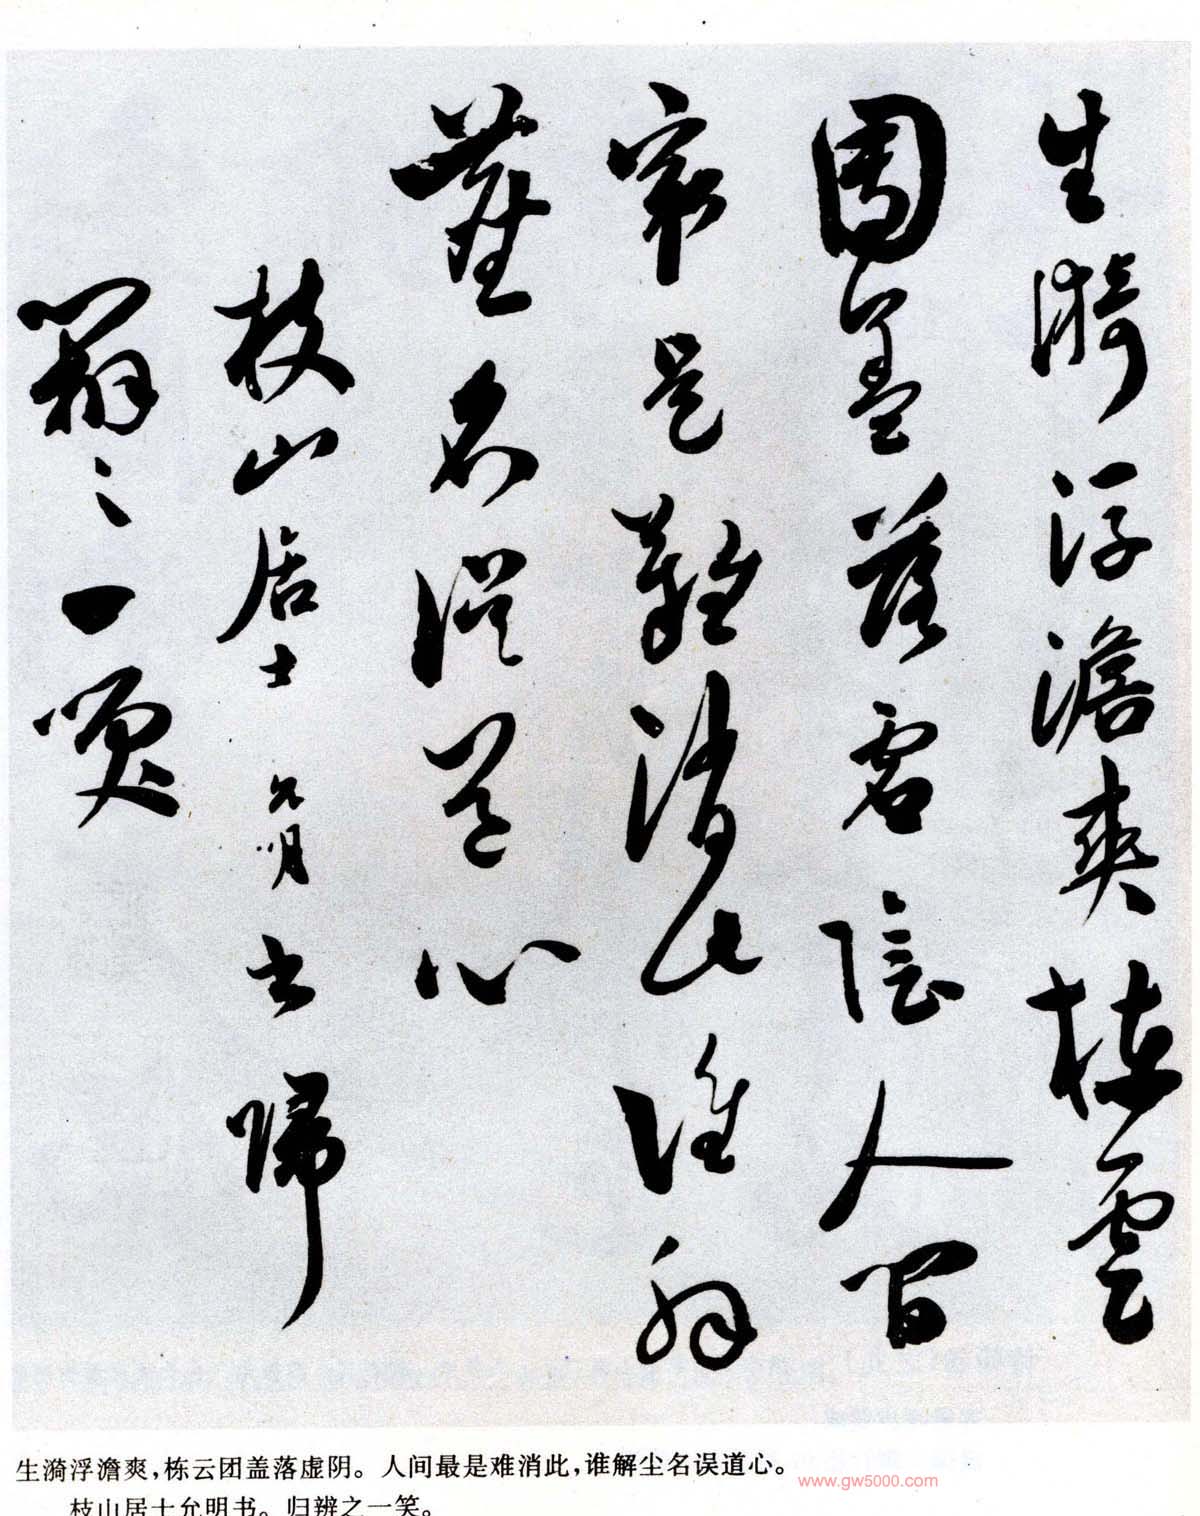 生漪浮澹爽棟雲
團蓋落虛陰人間
最是難消此誰解
塵名誤道心
枝山居士允明書歸
辨之一笑
生漪浮澹爽，栋云团盖落虚阴。人间最是难消此，谁解尘名误道心。
枝山居士允明书。归辨之一笑。
www.gw5000.com